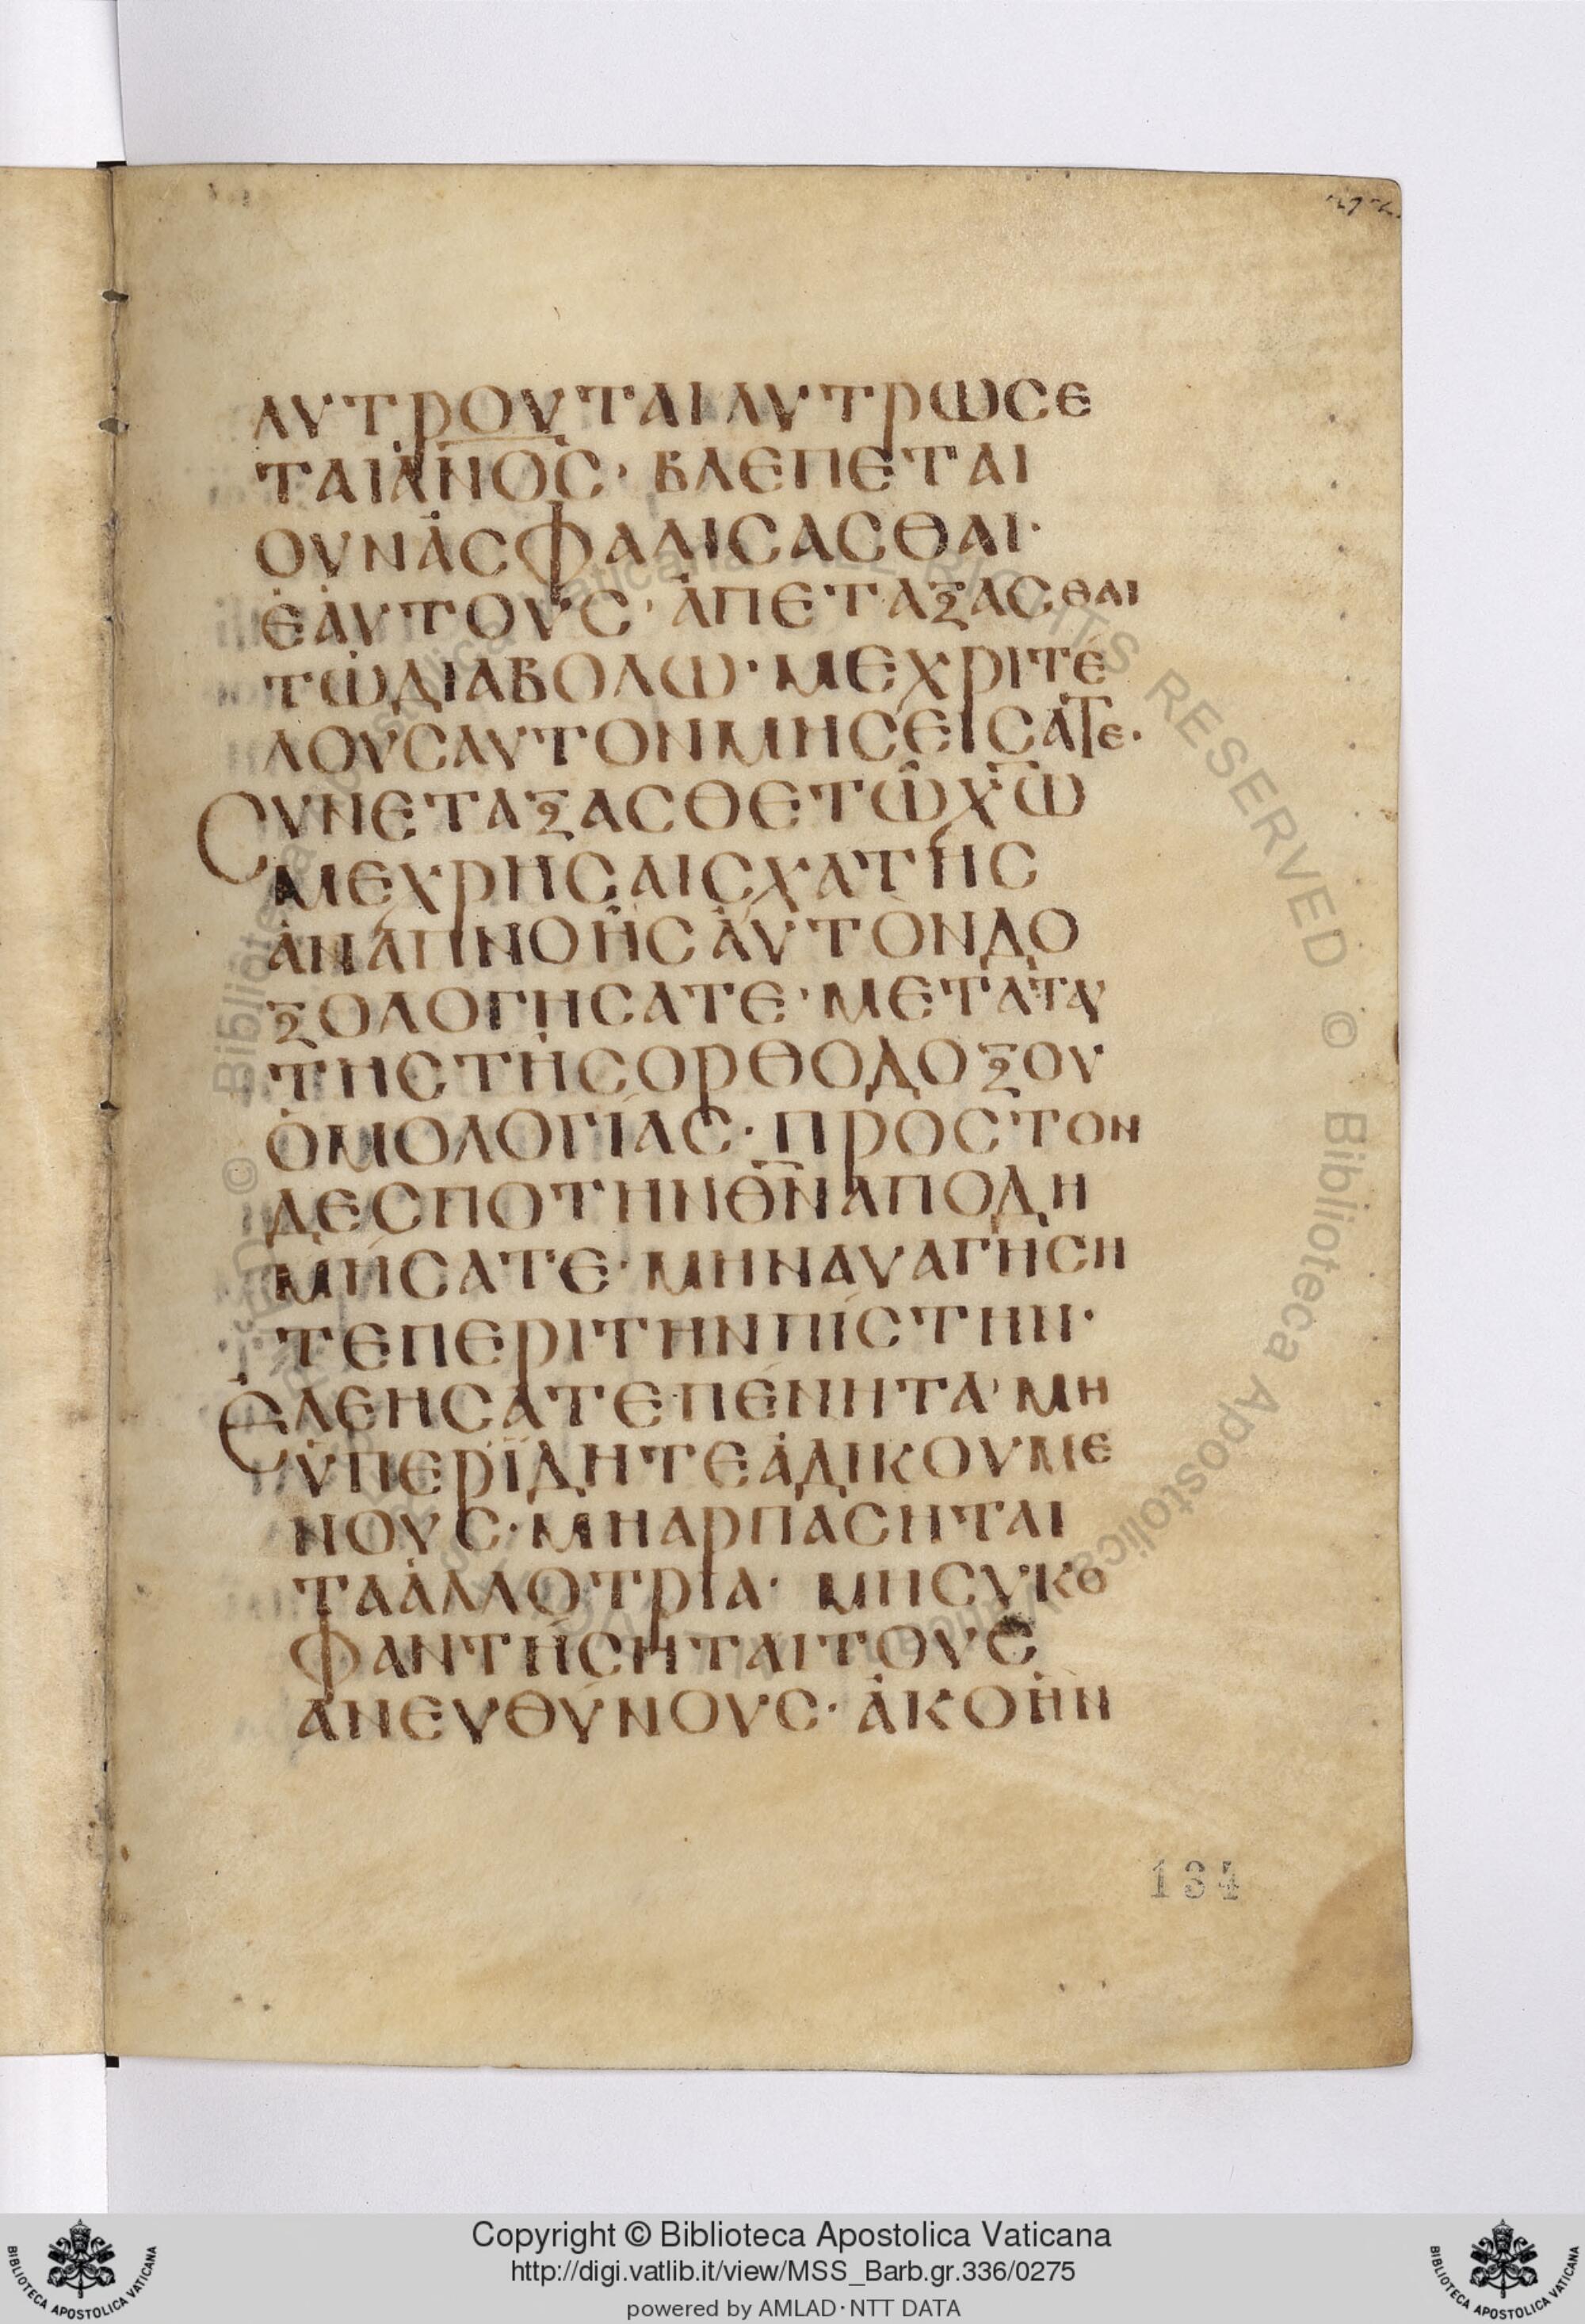 ΛΥΤΡΟΥΤΑΙ ΛΥΤΡΩΣΕ
ΤΑΙ ἈΝΟΣ· ΒΛΕΠΕΤΑΙ
ΟΥΝ ἈΣΦΑΛΙΣΑΣΘΑΙ·
ἙΑΥΤΟΥΣ· ἈΠΕΤΑΞΑΣΘΑΙ
ΤΩ ΔΙΑΒΟΛΩ· ΜΕΧΡΙ ΤΕ
ΛΟΥΣ ΑΥΤΟΝ ΜΗΣΕΙΣΑΤΕ·
ΣΥΝΕΤΑΞΑΣΘΕ ΤΩ ΧΩ
ΜΕΧΡΗΣ ΑΙΣΧΑΤΗΣ
ἈΝΑΠΝΟΗΣ ἈΥΤΟΝ ΔΟ
ΞΟΛΟΓΗΣΑΤΕ· ΜΕΤΑ ΤΑΥ
ΤΗΣ ΤΗΣ ΟΡΘΟΔΟΞΟΥ
ὉΜΟΛΟΓΙΑΣ· ΠΡΟΣ ΤΟΝ
ΔΕΣΠΟΤΗΝ ΘΝ ΑΠΟΔΗ
ΜΗΣΑΤΕ· ΜΗ ΝΑΥΑΓΗΣΗ
ΤΕ ΠΕΡΙ ΤΗΝ ΠΙΣΤΗΝ·
ἘΛΕΗΣΑΤΕ ΠΕΝΗΤΑ· ΜΗ
ὙΠΕΡΪΔΗΤΕ ἈΔΙΚΟΥΜΕ
ΝΟΥΣ· ΜΗ ΑΡΠΑΣΗΤΑΙ
ΤΑ ἈΛΛΟΤΡΙΑ· ΜΗ ΣΥΚΟ
ΦΑΝΤΗΣΗΤΑΙ ΤΟΥΣ
ΑΝΕΥΘΥΝΟΥΣ· ἈΚΟΗΝ
134
© Biblioteca Apostolica Vaticana ALL RIGHTS RESERVED © Biblioteca Apostolica Vaticana
Copyright © Biblioteca Apostolica Vaticana
http://digi.vatlib.it/view/MSS_Barb.gr.336/0275
powered by AMLAD·NTT DATA
BIBLIOTECA APOSTOLICA VATICANA
BIBLIOTECA APOSTOLICA VATICANA